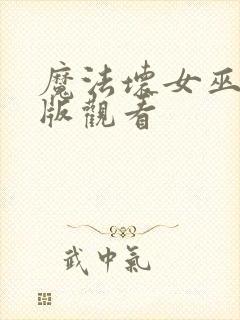 魔法壞女巫
版觀看
武中氣